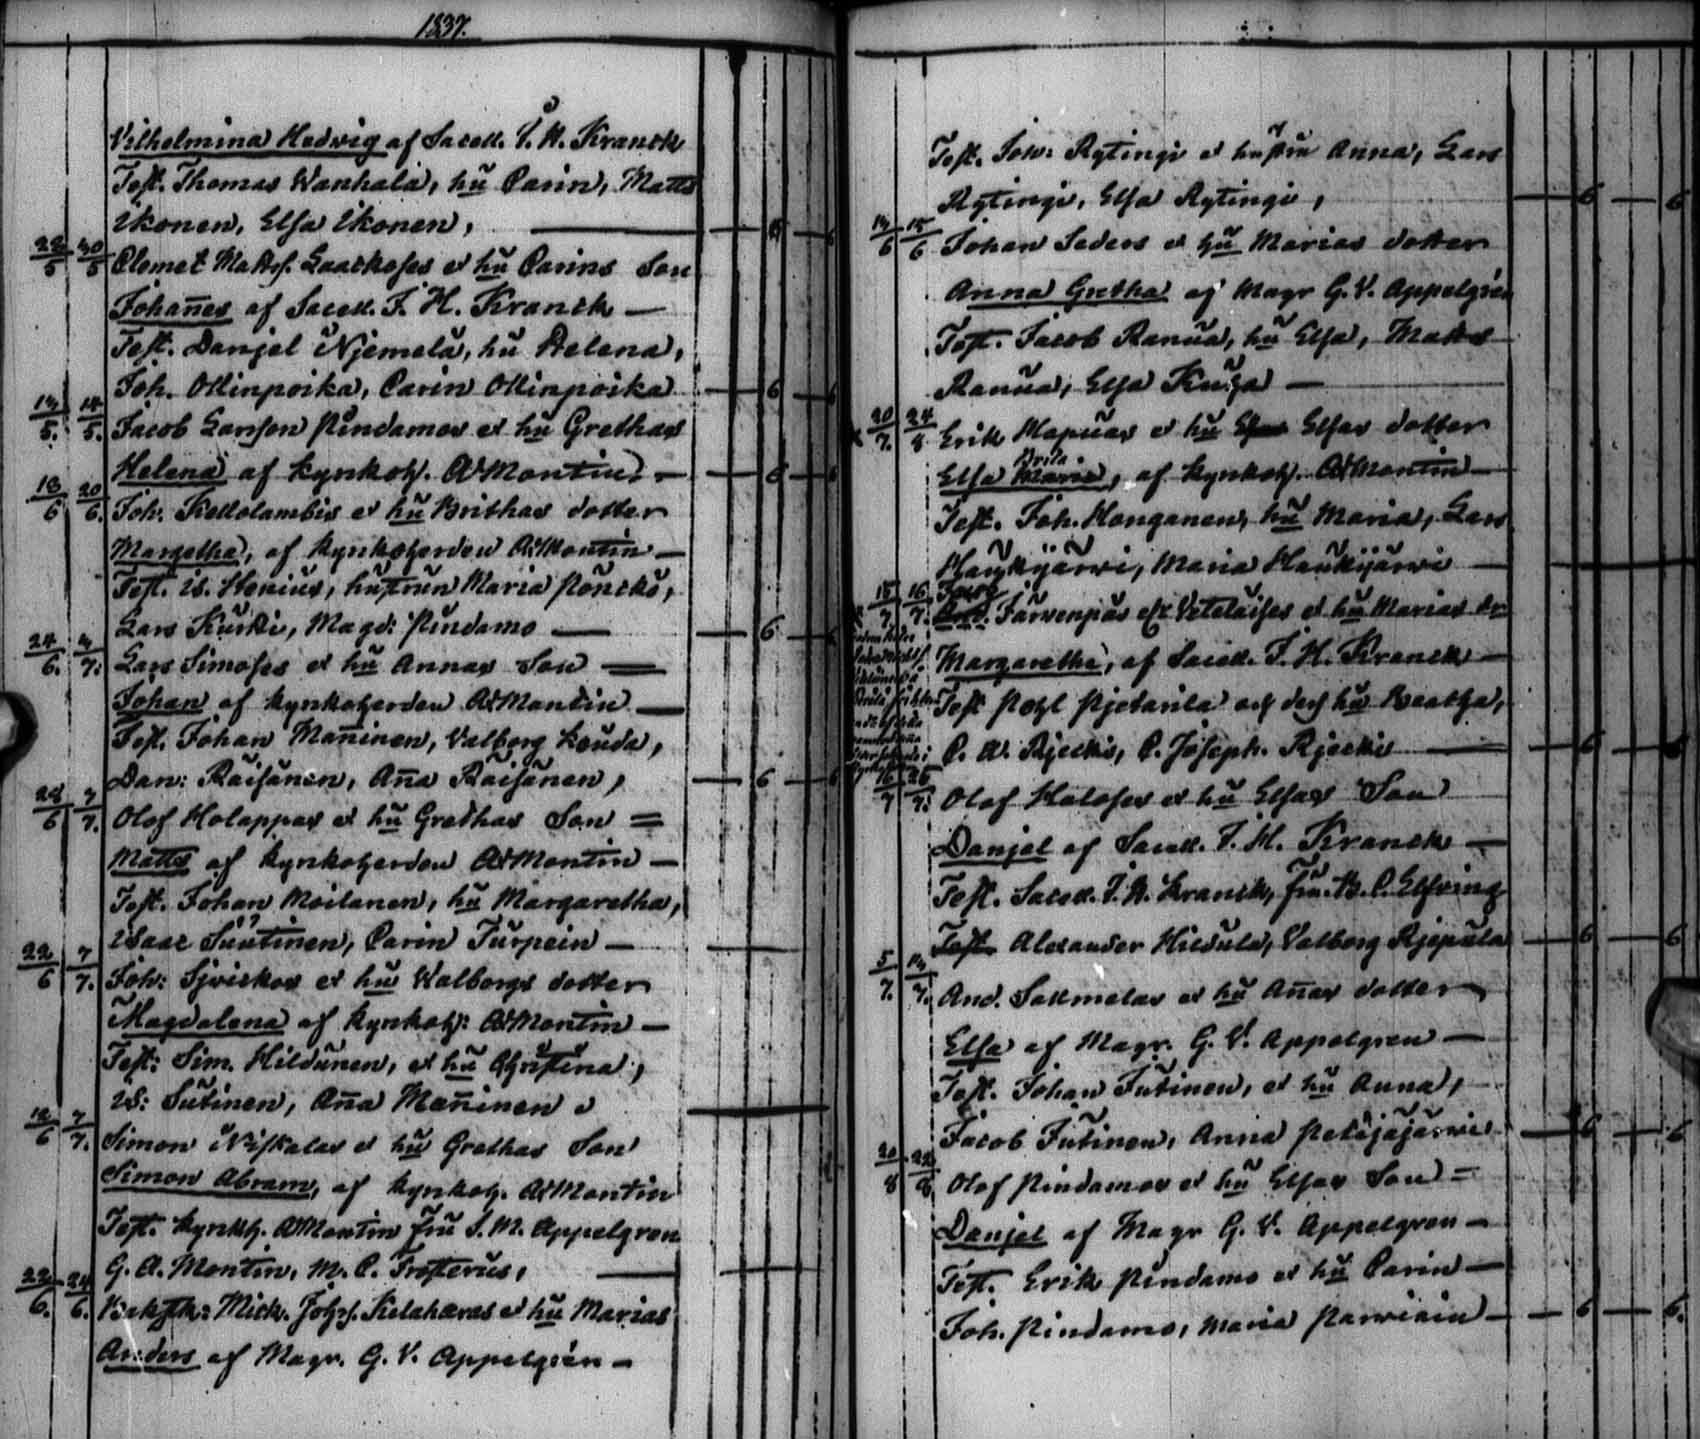 1837.
Vilhelmina Hedvig af Sacell. J. H. Kranck
Test. Thomas Wanhala, hŭ Carin, Matts
Ikonen, Elsa Ikonen, 6
28/5 30/5 Clemet Matts. Laackoses et hŭ Carins Son
Johan̄es af Sacell. J. H. Kranck —
Test. Danjel Njemelä, hŭ Helena,
Joh. Ollinpoika, Carin Ollinpoika 6
14/5. Jacob Larsson Pindamos et hŭ Grethas
Helena af Kyrkoh. AMontin — 6
18/6 20/6. Joh. Kellolambis et hŭ Brithas dotter
Margetha, af Kyrkoherden AMontin —
Test. Is. Henius, hustrun Maria
Lars Kurki, Magd: Pindamo — 6
24/6. 4/7. Lars Simoses et hŭ Annas Son =
Johan af Kyrkoherden AMontin —
Test. Johan Man̄inen, Valborg
Dan: Räisänen, An̄a Räisänen, 6
28/6 7/7. Olof Holappas et hŭ Grethas Son =
Matts af Kyrkoherden AMontin —
Test. Johan Moilanen, hŭ Margaretha,
Isaac Suutinen, Carin Turpein —
22/6 7/7. Joh: et hŭ Walborgs dotter
Magdalena af Kyrkoh: AMontin —
Test: Sim. Hildŭnen, et hŭ Christina,
Is: Sutinen, An̄a Man̄inen
12/6 7/7. Simon Niskalas et hŭ Grethas Son
Simon Abram, af Kyrkoh. AMontin
Test. Kyrkh. AMontin Fru S. M. Appelgren
G. A. Montin, M. C. Frosterus,
22/6. 24/6. Mich. Kelahaaras et hŭ Marias
Anders af Magr. G. V. Appelgrén —
Test. Joh: Rytingi et hustru Anna, Lars
Rytingi, Elsa Rytingi, 6 6
14/6 15/6 Johan Seders et hŭ Marias dotter
Anna Gretha af Magr G. V. Appelgrén
Test. Jacob Ranŭa, hŭ Elsa, Matts
Ranŭa, Elsa —
20/7. 24/8 Erik Mapŭas et hŭ Elsas dotter
Brita
Elsa Maria, af Kyrkoh. AMontin —
Test. Joh. Honganen, hŭ Maria, Lars
Haŭkijärvi, Maria Haŭkijärvi —
15/7 16/7. Jacob
And. Järvenpäs et hŭ Marias dr
Margaretha, af Sacell. J. H. Kranck —
Test Pohl Pjetarila och dess hŭ Beatha,
C. A. Rjecki, C. Joseph. Rjecki — 6
16/7 26/7. Olof Haloses et hŭ Elsas Son
Danjel af Sacell. J. H. Kranck —
Test. Sacell. J. H. Kranck, Frŭ. B. C. Elfving
Test. Alexander Hildula, Valborg 6 6
5/7. 14/7. And. Sallmelas et hŭ An̄as dotter
Elsa af Magr. G. V. Appelgren —
Test. Johan Jŭtinen, et hŭ Anna,
Jacob Jŭtinen, Anna Petäjäjärvi 6 6
20/8 22/8 Olof Pindamos et hŭ Elsas Son =
Danjel af Magr G. V. Appelgren —
Test. Erik Pindamo et hŭ Carin —
Joh. Pindamo, Maria Parviain — 6 6.